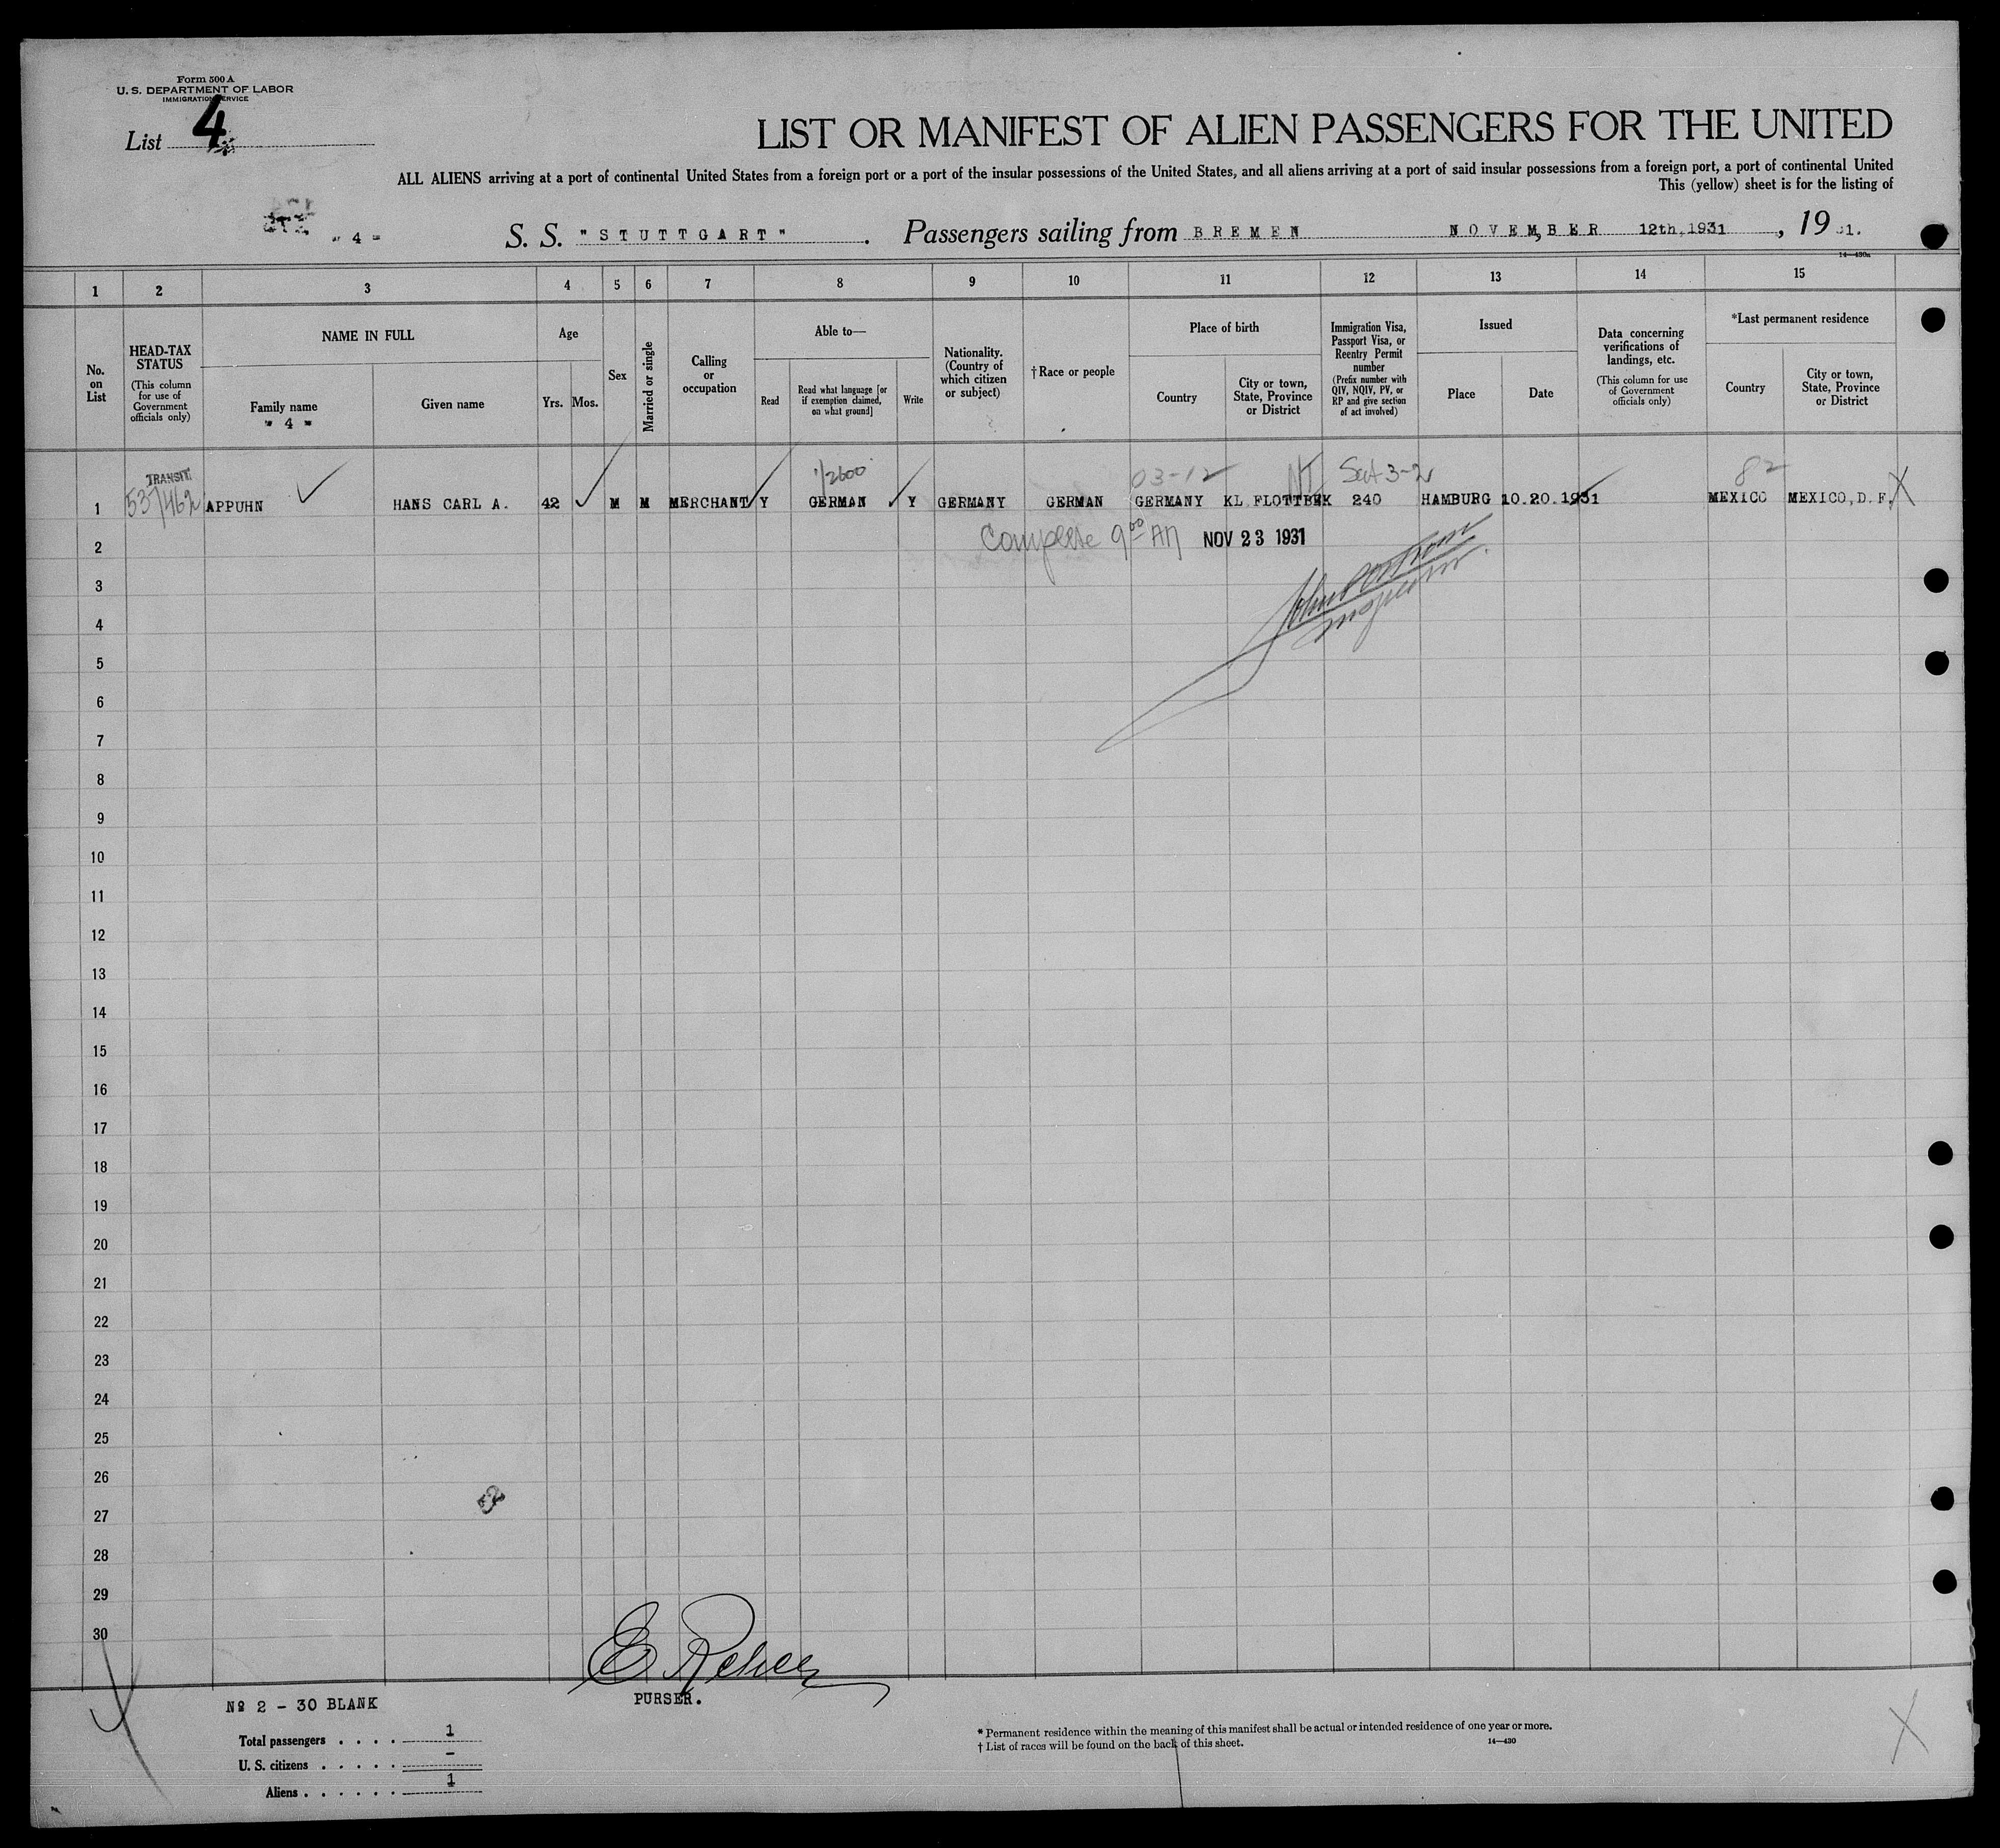 Form 500 A
U. S. DEPARTMENT OF LABOR
IMMIGRATION SERVICE
List 4
LIST OR MANIFEST OF ALIEN PASSENGERS FOR THE UNITED
ALL ALIENS arriving at a port of continental United States from a foreign port or a port of the insular possessions of the United States, and all aliens arriving at a port of said insular possessions from a foreign port, a port of continental United
This (yellow) sheet is for the listing of
" 4 "
S. S. "STUTTGART". Passengers sailing from BREMEN NOVEMBER 12th, 1931, 19 31.
14—430a
1 2 3 4 5 6 7 8 9 10 11 12 13 14 15
No. on List
HEAD-TAX STATUS
(This column for use of Government officials only)
NAME IN FULL
Family name
" 4 "
Given name
Age
Yrs. Mos.
Sex
Married or single
Calling or occupation
Able to—
Read
Read what language [or if exemption claimed, on what ground]
Write
Nationality. (Country of which citizen or subject)
† Race or people
Place of birth
Country
City or town, State, Province or District
Immigration Visa, Passport Visa, or Reentry Permit number
(Prefix number with QIV, NQIV, PV, or RP and give section of act involved)
Issued
Place
Date
Data concerning verifications of landings, etc.
(This column for use of Government officials only)
*Last permanent residence
Country
City or town, State, Province or District
TRANSIT 1/2600 03-12 NI Sect 3-2 82
1 537/462 APPUHN HANS CARL A. 42 M M MERCHANT Y GERMAN Y GERMANY GERMAN GERMANY KL FLOTTBEK 240 HAMBURG 10.20.1931 MEXICO MEXICO, D. F. X
2 Complete 9 00 AM NOV 23 1931
3
4
5
6
7
8
9
10
11
12
13
14
15
16
17
18
19
20
21
22
23
24
25
26
27
28
29
30
PURSER.
No 2 - 30 BLANK
Total passengers . . . . 1
U. S. citizens . . . . . –
Aliens . . . . . . 1
* Permanent residence within the meaning of this manifest shall be actual or intended residence of one year or more.
† List of races will be found on the back of this sheet.
14—430
X